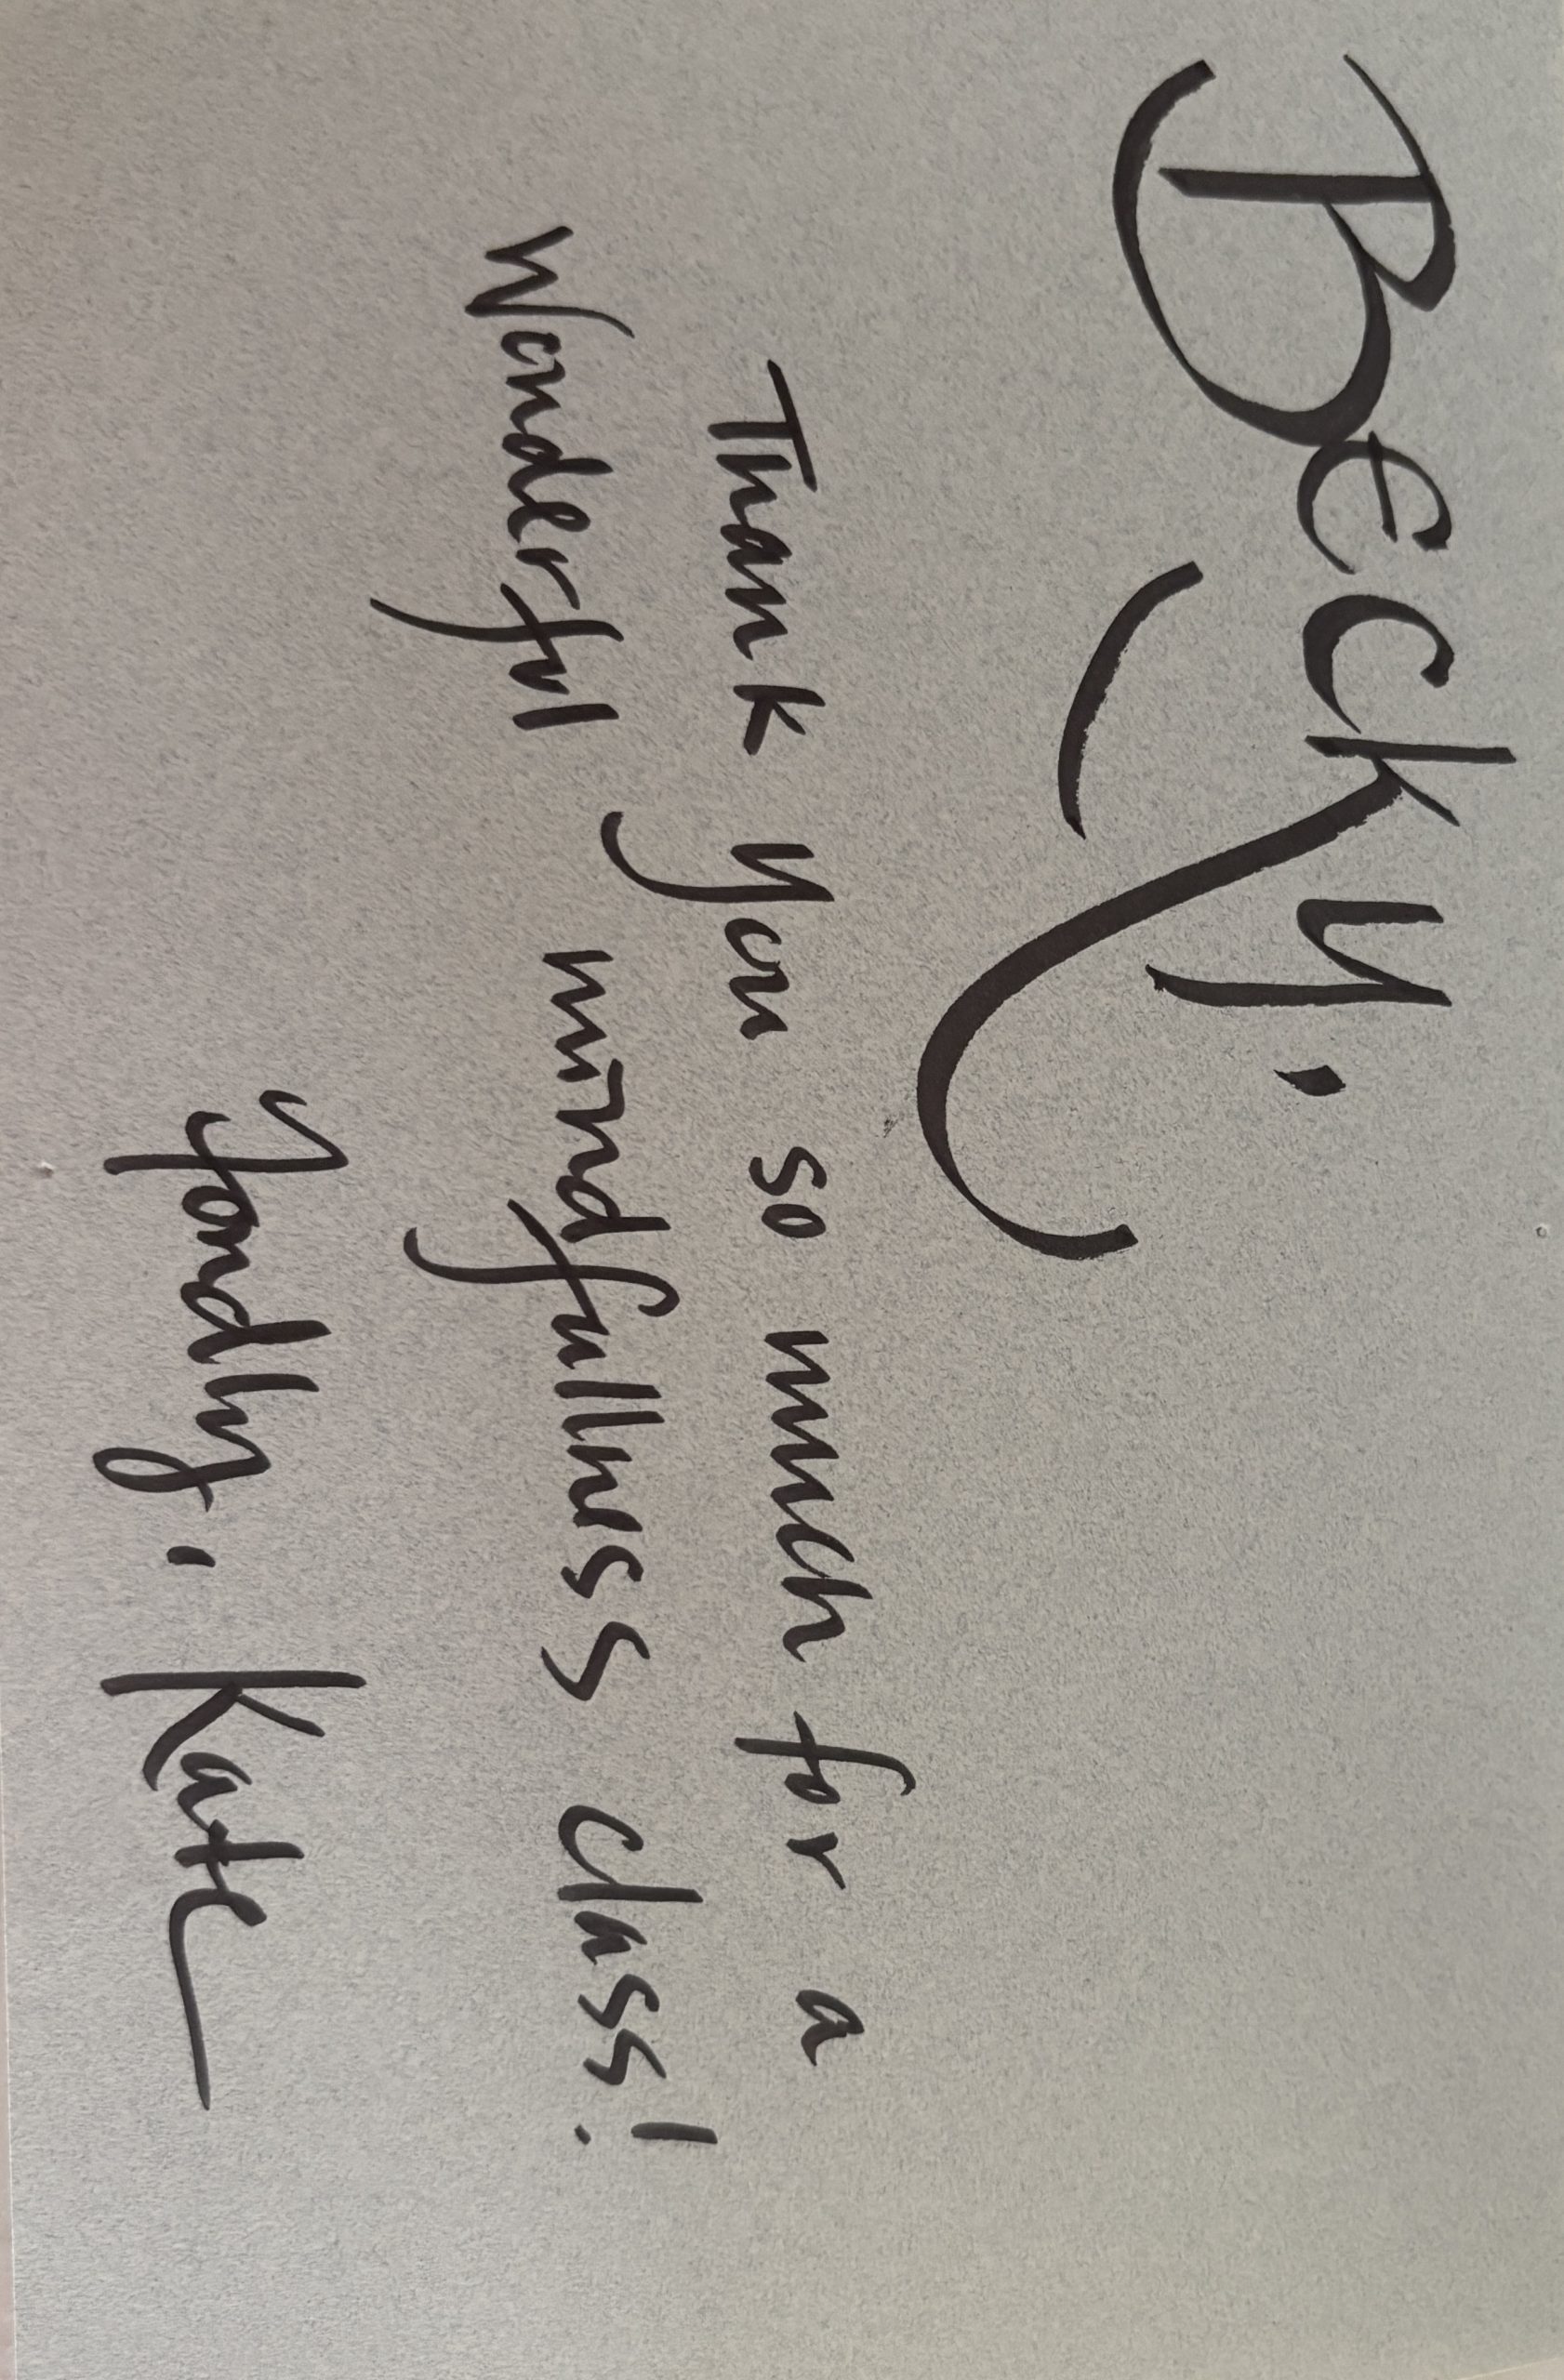 Becky,
Thank you so much for a
wonderful mindfullness class!
Fondly, Kate